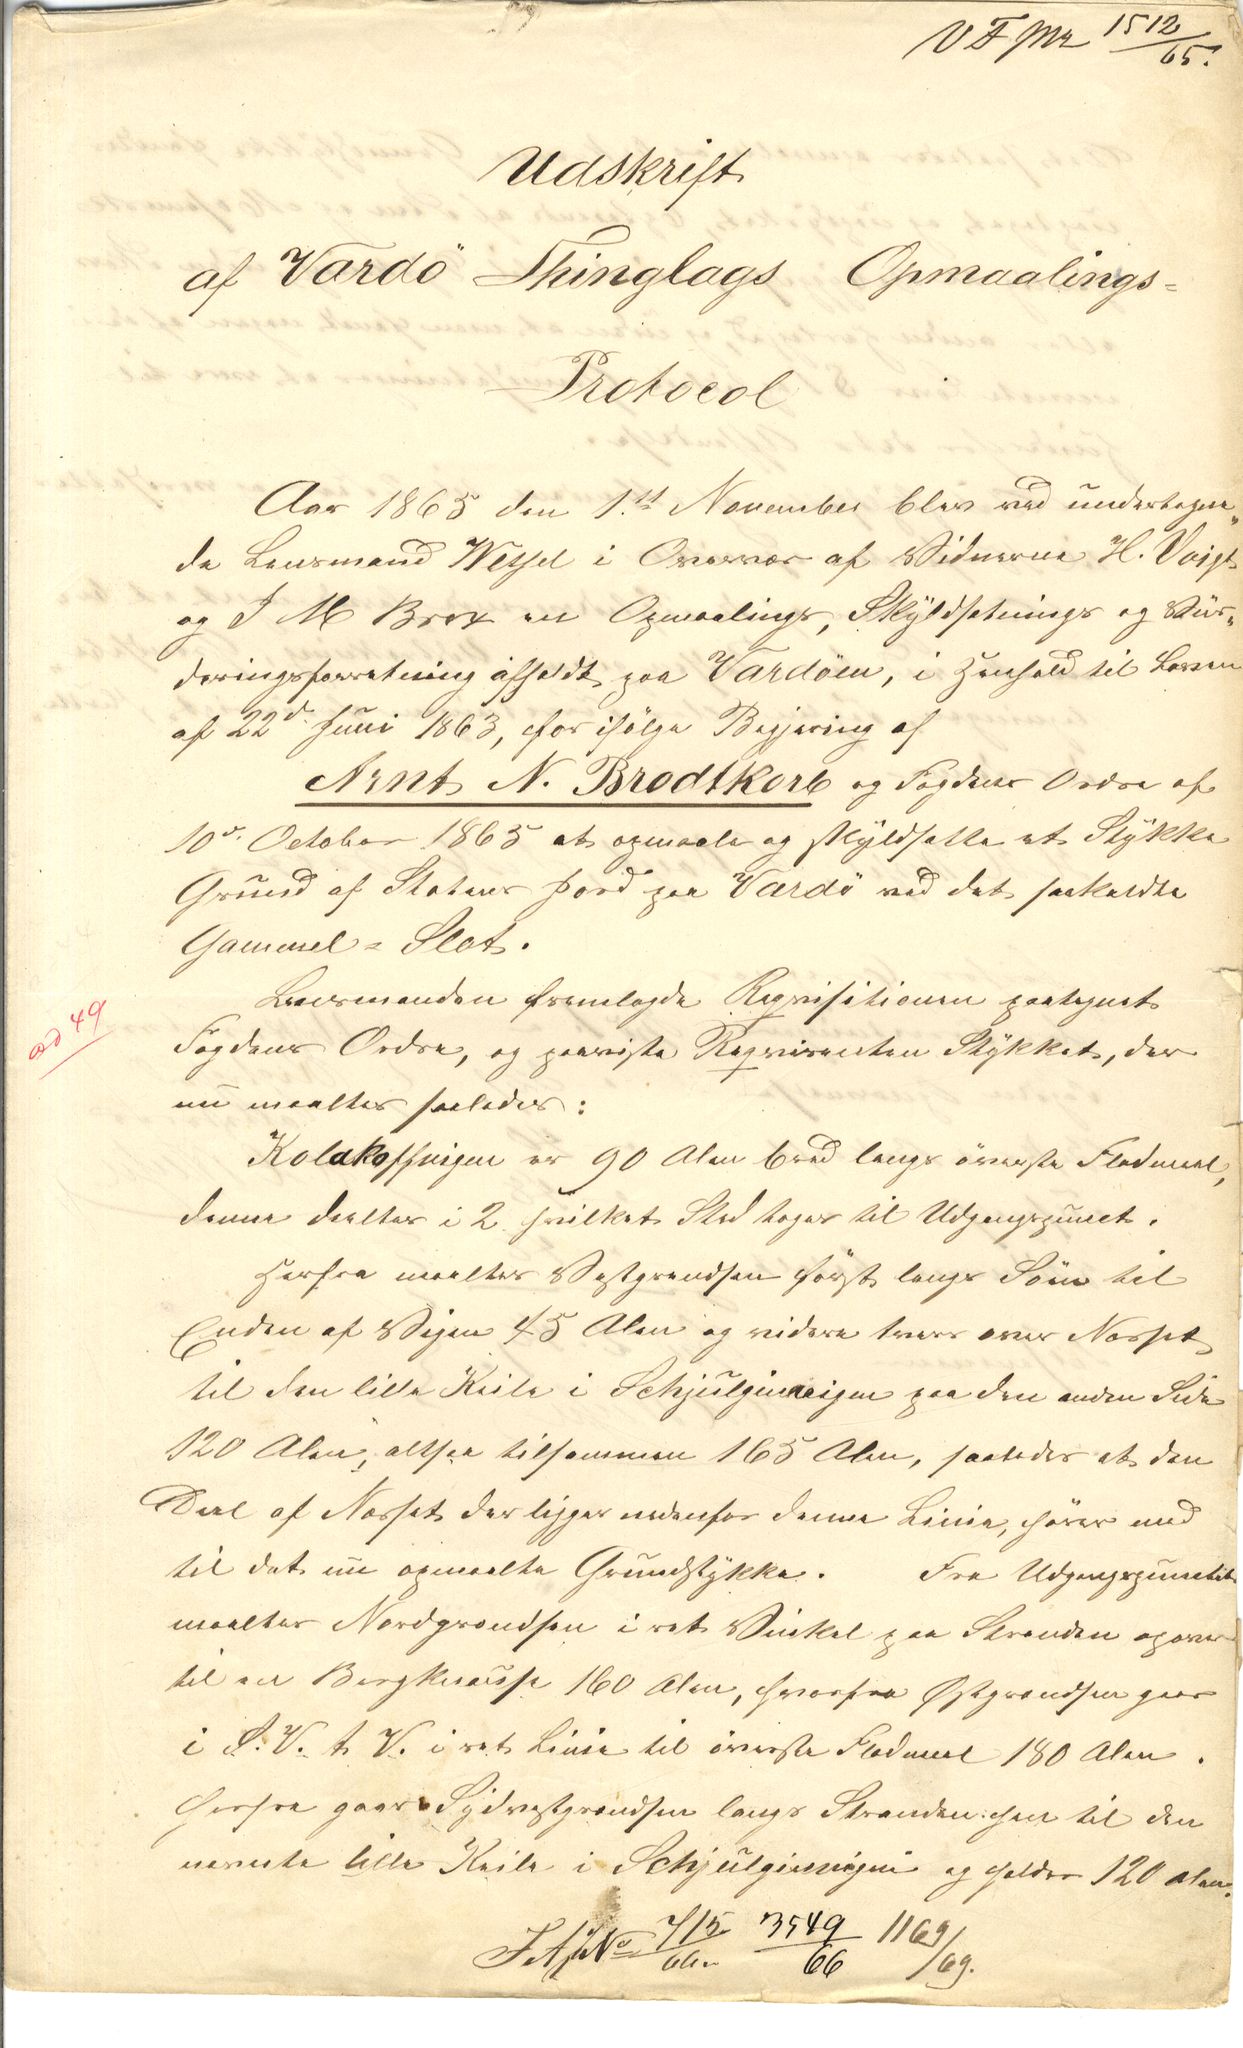 V F Mr 1512/65.
Udskrift
af Vardö Thinglags Opmaalings-
Protocol
Aar 1865 den 1.st November blev ved undertegne-
de Lensmand Wessel i Overvær af Vidnerne H. Voigt
og J M Brox en Opmaalings, Skyldsætnings og Vur-
deringsforretning afholdt paa Vardöen, i Henhold til Loven
af 22d Juni 1863, for ifölge Begjæring af
Arnt N. Brodtkorb og Fogdens Ordre af
10d October 1865 at opmaale og skyldsætte et Stykke
Grund af Statens Jord paa Vardö ved det saakaldte
Gammel-Slot.
Lensmanden fremlagde Reqvisitionen paategnet
ad 49
Fogdens Ordre, og paaviste Reqvirenten Stykket, der
nu maaltes saaledes:
Kolakoffvigen er 90 Alen bred langs överste Flodmaal,
denne deeltes i 2 hvilket Sted toges til Udgangspunct.
Herfra maaltes Vestgrændsen först langs Söen til
Enden af Vigen 45 Alen og videre tvers over Næsset
til den lille Keile i Schjulginvigen paa den anden Side
120 Alen, altsaa tilsammen 165 Alen, saaledes at den
Deel af Næsset der ligger nedenfor denne Linie, hörer med
til det nu opmaalte Grundstykke. Fra Udgangspunctet
maaltes Nordgrændsen i ret Vinkel paa Stranden opover
til en Bergknause 160 Alen, hvorfra Østgrændsen gaar
i S.V. t V. i ret Linie til överste Flodmaal 180 Alen.
Herfra gaar Sydvestgrændsen langs Stranden hen til den
nævnte lille Keile i Schjulginvigen og holder 120 Alen.
715/66. 3549/66 1169/69.